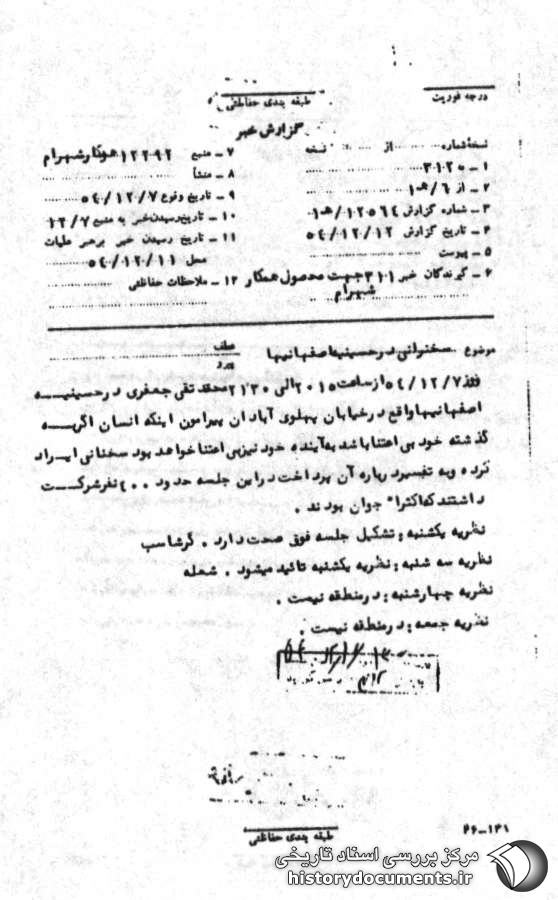 درجه فوریت
طبقه بندی حفاظتی
گزارش خبر
نسخه شماره از نسخه
۱ـ به ۳۱۲
۲ـ از ۶/هـ۱
۳ـ شماره گزارش ۱۲۵۶۴/هـ۱
۴ـ تاریخ گزارش ۵۴/۱۲/۱۲
۵ـ پیوست
۶ـ گیرندگان خبر ۳۱۱ جهت محصول همکار شهرام
۷ـ منبع ۱۲۲۹۲ همکار شهرام
۸ـ منشأ
۹ـ تاریخ وقوع ۵۴/۱۲/۷
۱۰ـ تاریخ رسیدن خبر به منبع ۱۲/۷
۱۱ـ تاریخ رسیدن خبر برهبر عملیات
محل ۵۴/۱۲/۱۱
۱۲ـ ملاحظات حفاظتی
موضوع سخنرانی در حسینیه اصفهانیها
عطف
پیرو
روز ۵۴/۱۲/۷ از ساعت ۲۰۱۵ الی ۲۱۳۰ محمد تقی جعفری در حسینیه
اصفهانیها واقع در خیابان پهلوی آبادان پیرامون اینکه انسان اگر به
گذشته خود بی اعتنا باشد به آینده خود نیز بی اعتنا خواهد بود سخنانی ایراد
کرده و به تفسیر درباره آن پرداخت در این جلسه حدود ۴۰۰ نفر شرکت
داشتند که اکثراً جوان بودند .
نظریه یکشنبه : تشکیل جلسه فوق صحت دارد . گرشاسب
نظریه سه شنبه : نظریه یکشنبه تائید میشود . شعله
نظریه چهارشنبه : در منطقه نیست .
نظریه جمعه : در منطقه نیست .
طبقه بندی حفاظتی
۲۶-۱۲۱
مرکز بررسی اسناد تاریخی
historydocuments.ir